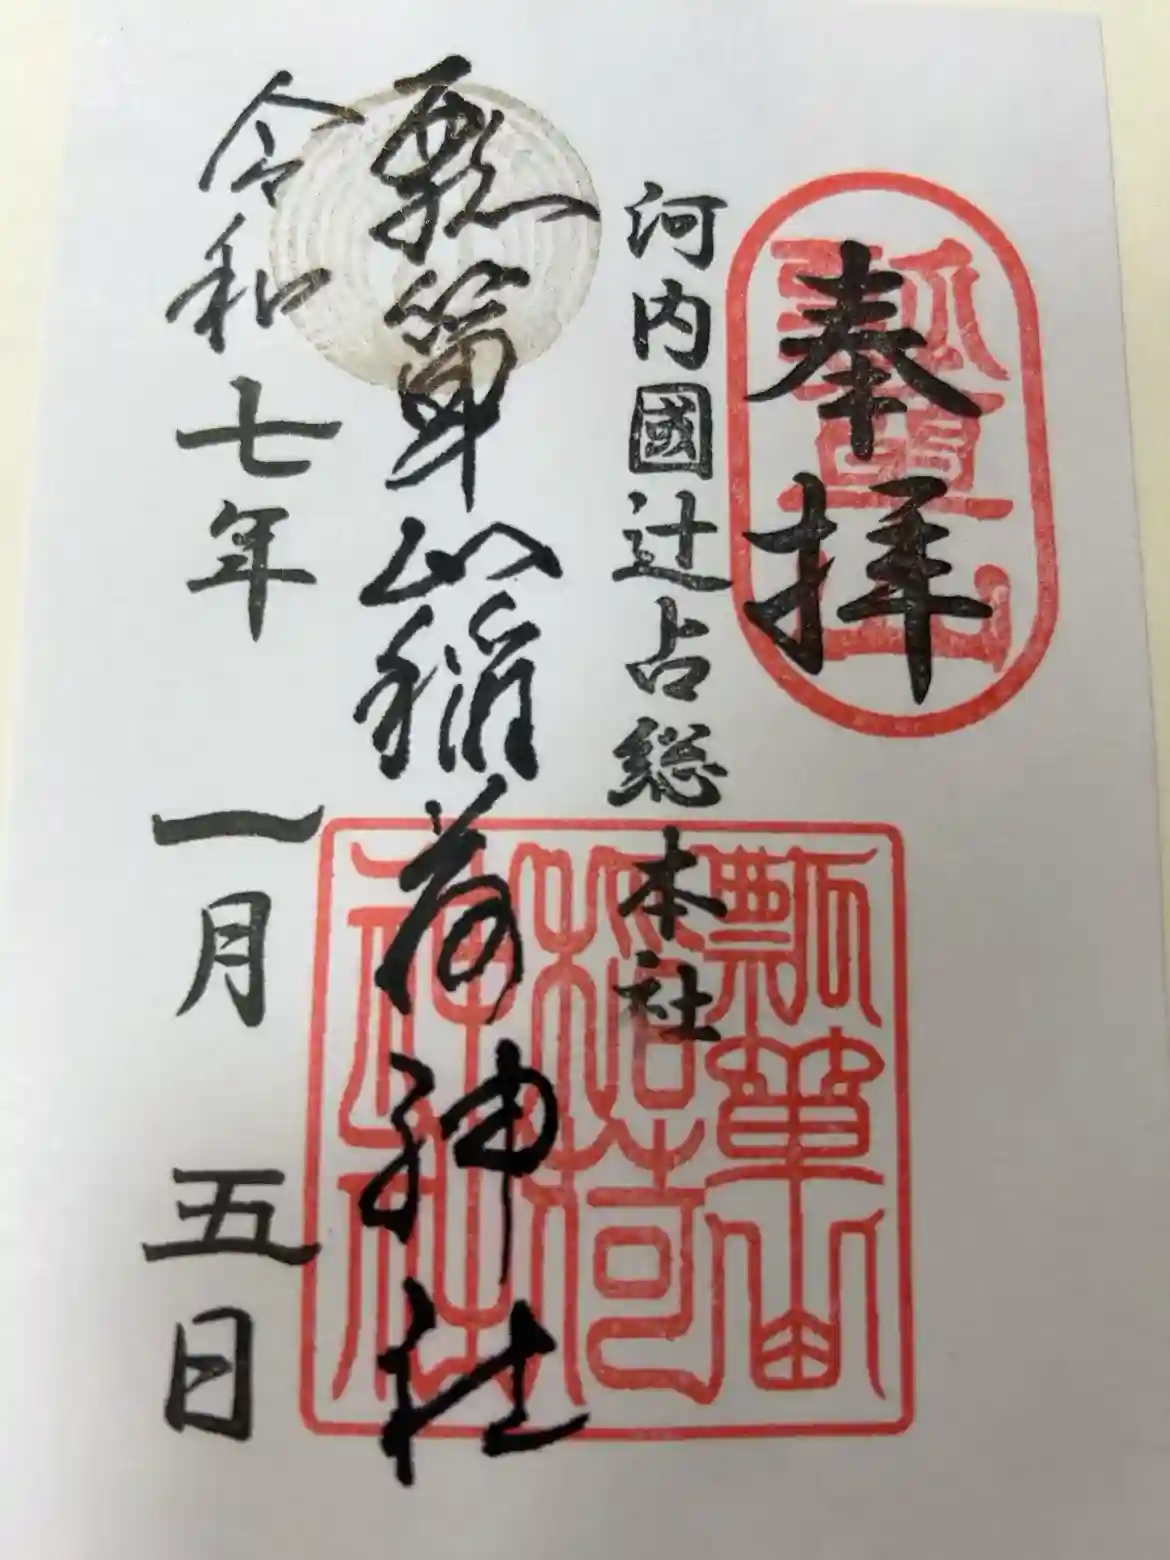 奉拝
瓢箪山
河内國辻占総本社
瓢箪山稲荷神社
瓢箪山
稲荷
神社
令和七年一月五日